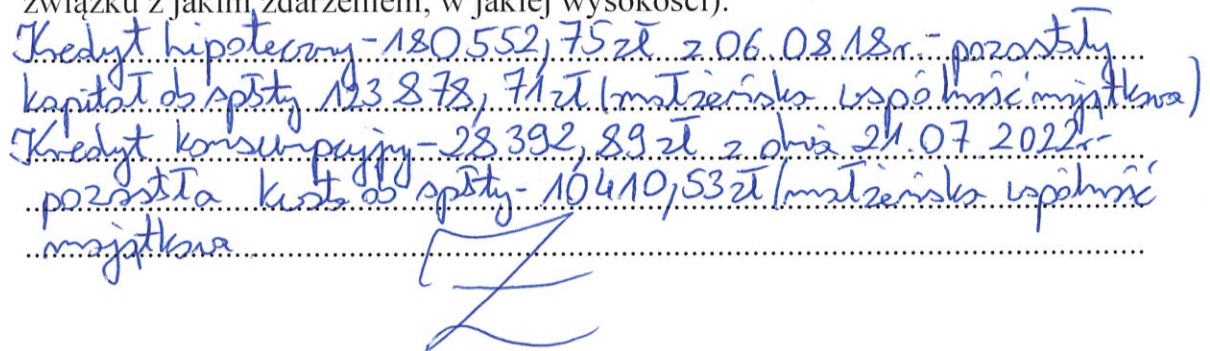 związku z jakim zdarzeniem, w jakiej wysokości).
Kredyt hipoteczny - 180 552,75 zł z 06.08.18r. - pozostały
kapitał do spłaty 123 878,71 zł (małżeńska wspólność majątkowa)
Kredyt konsumpcyjny - 28 392,89 zł z dnia 21.07.2022r. -
pozostała kwota do spłaty - 10 410,53 zł (małżeńska wspólność
majątkowa